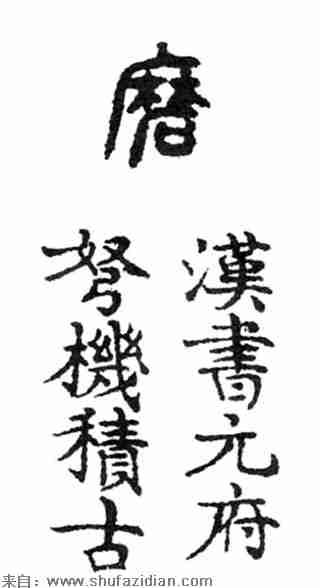 磨
漢書元府
弩機積古
来自：www.shufazidian.com